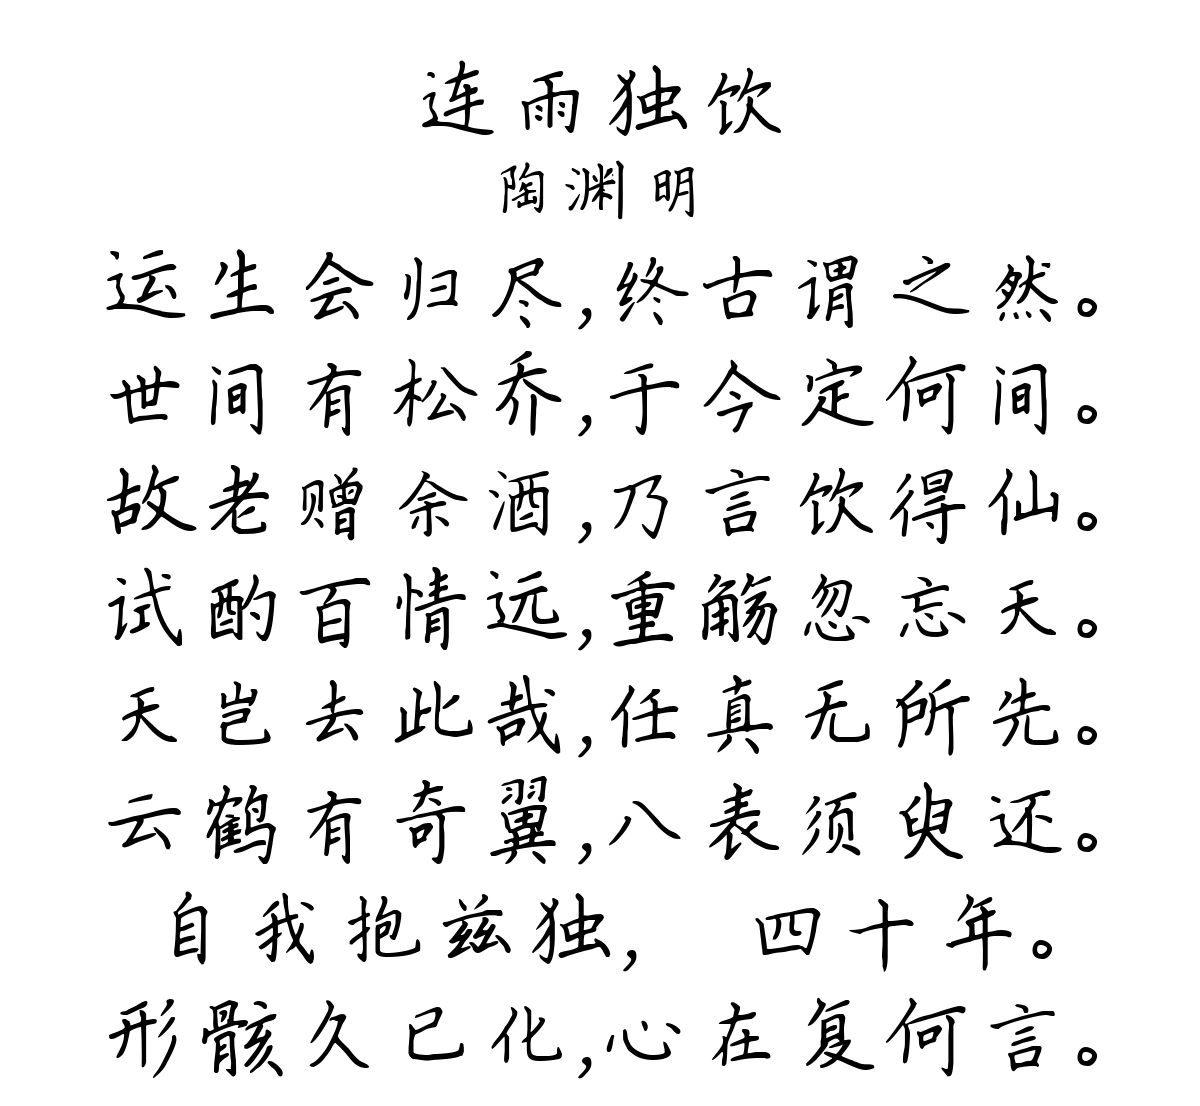 连雨独饮
陶渊明
运生会归尽,终古谓之然。
世间有松乔,于今定何间。
故老赠余酒,乃言饮得仙。
试酌百情远,重觞忽忘天。
天岂去此哉,任真无所先。
云鹤有奇翼,八表须臾还。
自我抱兹独, 四十年。
形骸久已化,心在复何言。